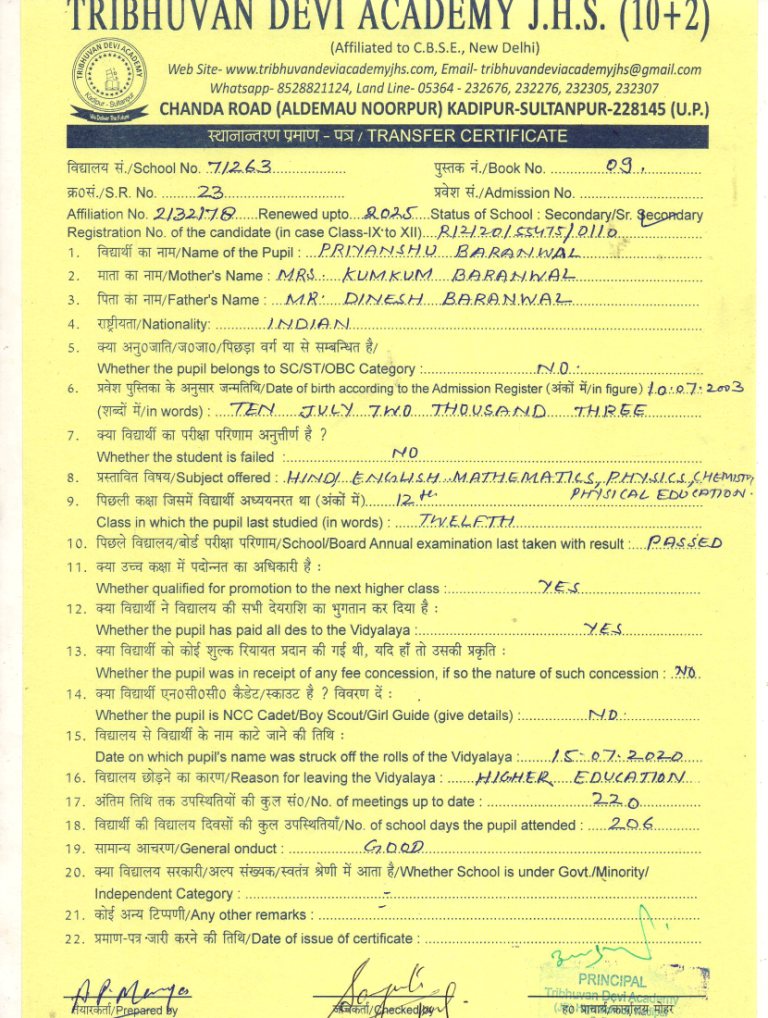 TRIBHUVAN DEVI ACADEMY J.H.S. (10+2)
(Affiliated to C.B.S.E., New Delhi)
TRIBHUVAN DEVI ACADEMY
Kadipur - Sultanpur
We Deliver The Future
Web Site- www.tribhuvandeviacademyjhs.com, Email- tribhuvandeviacademyjhs@gmail.com
Whatsapp- 8528821124, Land Line- 05364 - 232676, 232276, 232305, 232307
CHANDA ROAD (ALDEMAU NOORPUR) KADIPUR-SULTANPUR-228145 (U.P.)
स्थानान्तरण प्रमाण - पत्र / TRANSFER CERTIFICATE
विद्यालय सं./School No. 71263 पुस्तक नं./Book No. 09.
क्र०सं./S.R. No. 23 प्रवेश सं./Admission No.
Affiliation No. 2132178 Renewed upto 2025 Status of School : Secondary/Sr. Secondary
Registration No. of the candidate (in case Class-IX to XII) R12/20/55475/0110
1. विद्यार्थी का नाम/Name of the Pupil : PRIYANSHU BARANWAL
2. माता का नाम/Mother's Name : MRS. KUMKUM BARANWAL
3. पिता का नाम/Father's Name : MR. DINESH BARANWAL
4. राष्ट्रीयता/Nationality: INDIAN
5. क्या अनु०जाति/ज०जा०/पिछड़ा वर्ग या से सम्बन्धित है/
Whether the pupil belongs to SC/ST/OBC Category : NO.
6. प्रवेश पुस्तिका के अनुसार जन्मतिथि/Date of birth according to the Admission Register (अंकों में/in figure) 10.07.2003
(शब्दों में/in words) : TEN JULY TWO THOUSAND THREE
7. क्या विद्यार्थी का परीक्षा परिणाम अनुत्तीर्ण है ?
Whether the student is failed : NO
8. प्रस्तावित विषय/Subject offered : HINDI, ENGLISH MATHEMATICS, PHYSICS, CHEMISTRY
PHYSICAL EDUCATION.
9. पिछली कक्षा जिसमें विद्यार्थी अध्ययनरत था (अंकों में) 12th
Class in which the pupil last studied (in words) : TWELFTH
10. पिछले विद्यालय/बोर्ड परीक्षा परिणाम/School/Board Annual examination last taken with result : PASSED
11. क्या उच्च कक्षा में पदोन्नत का अधिकारी है :
Whether qualified for promotion to the next higher class : YES
12. क्या विद्यार्थी ने विद्यालय की सभी देयराशि का भुगतान कर दिया है :
Whether the pupil has paid all des to the Vidyalaya : YES
13. क्या विद्यार्थी को कोई शुल्क रियायत प्रदान की गई थी, यदि हाँ तो उसकी प्रकृति :
Whether the pupil was in receipt of any fee concession, if so the nature of such concession : NO
14. क्या विद्यार्थी एन०सी०सी० कैडेट/स्काउट है ? विवरण दें :
Whether the pupil is NCC Cadet/Boy Scout/Girl Guide (give details) : NO.
15. विद्यालय से विद्यार्थी के नाम काटे जाने की तिथि :
Date on which pupil's name was struck off the rolls of the Vidyalaya : 15-07-2020
16. विद्यालय छोड़ने का कारण/Reason for leaving the Vidyalaya : HIGHER EDUCATION
17. अंतिम तिथि तक उपस्थितियों की कुल सं०/No. of meetings up to date : 220
18. विद्यार्थी की विद्यालय दिवसों की कुल उपस्थितियाँ/No. of school days the pupil attended : 206
19. सामान्य आचरण/General onduct : GOOD
20. क्या विद्यालय सरकारी/अल्प संख्यक/स्वतंत्र श्रेणी में आता है/Whether School is under Govt./Minority/
Independent Category : -
21. कोई अन्य टिप्पणी/Any other remarks : -
22. प्रमाण-पत्र जारी करने की तिथि/Date of issue of certificate :
PRINCIPAL
Tribhuvan Devi Academy
तैयारकर्ता/Prepared by जाँचकर्ता/Checked by ह० प्राचार्य/कार्यालय मोहर